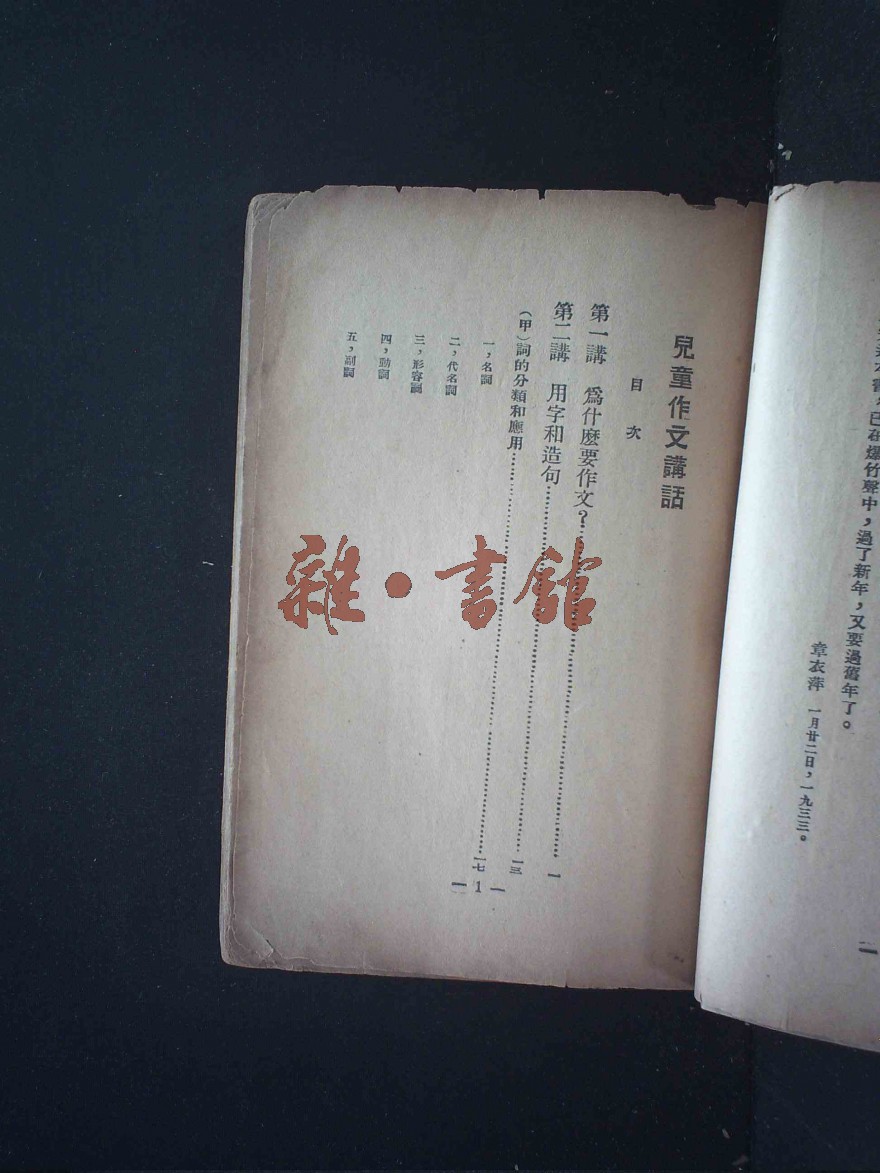 過了新年，又要過舊年了。
章衣萍 一月廿二日，一九三三。
兒童作文講話
目次
第一講 爲什麽要作文？…………一
第二講 用字和造句…………一三
（甲）詞的分類和應用…………一七
一，名詞
二，代名詞
三，形容詞
四，動詞
五，副詞
— 1 —
雜·書館